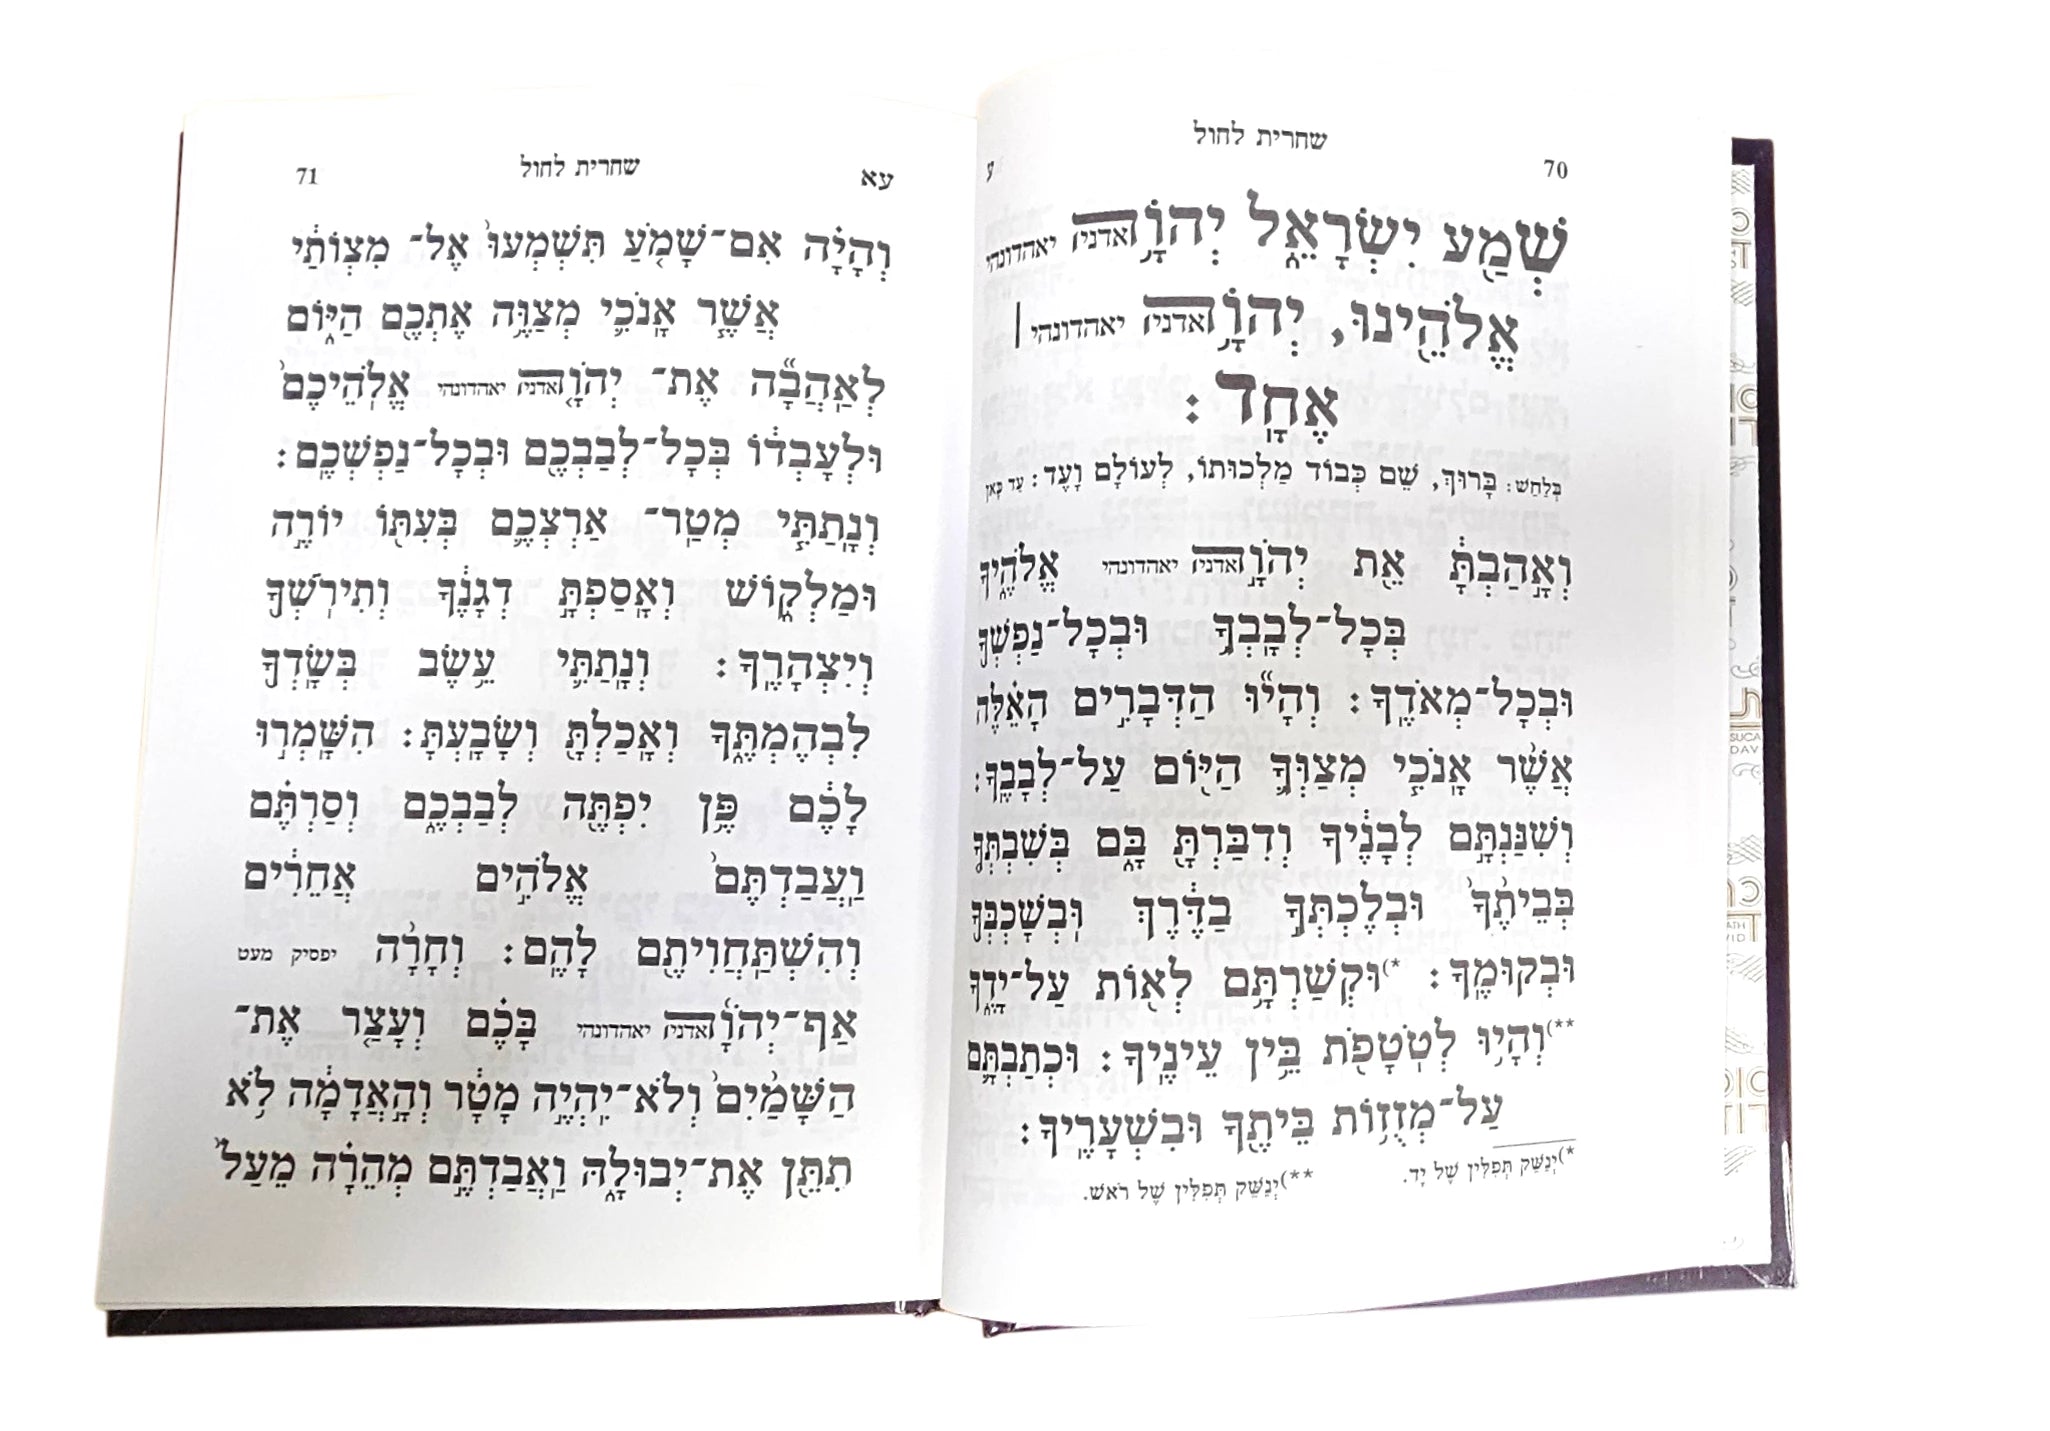 שחרית לחול
70 ע
שְׁמַ֖ע יִשְׂרָאֵ֑ל יְהוָ֥ה אדני יאהדונהי
אֱלֹהֵ֖ינוּ, יְהוָ֥ה אדני יאהדונהי |
אֶחָֽד׃
בְּלַחַשׁ: בָּרוּךְ, שֵׁם כְּבוֹד מַלְכוּתוֹ, לְעוֹלָם וָעֶד: עַד כָּאן
וְאָ֣הַבְתָּ֔ אֵ֖ת יְהוָ֣ה אדני יאהדונהי אֱלֹהֶ֑יךָ
בְּכָל־לְבָֽבְךָ֥ וּבְכָל־נַפְשְׁךָ֖
וּבְכָל־מְאֹדֶֽךָ׃ וְהָי֞וּ הַדְּבָרִ֣ים הָאֵ֗לֶּה
אֲשֶׁ֨ר אָֽנֹכִ֧י מְצַוְּךָ֛ הַיּ֖וֹם עַל־לְבָבֶֽךָ׃
וְשִׁנַּנְתָּ֣ם לְבָנֶ֔יךָ וְדִבַּרְתָּ֖ בָּ֑ם בְּשִׁבְתְּךָ֤
בְּבֵיתֶ֙ךָ֙ וּבְלֶכְתְּךָ֣ בַדֶּ֔רֶךְ וּֽבְשָׁכְבְּךָ֖
וּבְקוּמֶֽךָ׃ *)וּקְשַׁרְתָּ֥ם לְא֖וֹת עַל־יָדֶ֑ךָ
**)וְהָי֥וּ לְטֹטָפֹ֖ת בֵּ֥ין עֵינֶֽיךָ׃ וּכְתַבְתָּ֛ם
עַל־מְזֻז֥וֹת בֵּיתֶ֖ךָ וּבִשְׁעָרֶֽיךָ׃
*)יְנַשֵּׁק תְּפִלִּין שֶׁל יָד. **)יְנַשֵּׁק תְּפִלִּין שֶׁל רֹאשׁ.
שחרית לחול
עא 71
וְהָיָ֗ה אִם־שָׁמֹ֤עַ תִּשְׁמְעוּ֙ אֶל־ מִצְוֺתַ֔י
אֲשֶׁ֧ר אָֽנֹכִ֛י מְצַוֶּ֥ה אֶתְכֶ֖ם הַיּ֑וֹם
לְאַֽהֲבָ֞ה אֶת־ יְהוָ֤ה אדני יאהדונהי אֱלֹֽהֵיכֶם֙
וּלְעָבְד֔וֹ בְּכָל־לְבַבְכֶ֖ם וּבְכָל־נַפְשְׁכֶֽם׃
וְנָֽתַתִּ֧י מְטַֽר־ אַרְצְכֶ֛ם בְּעִתּ֖וֹ יוֹרֶ֣ה
וּמַלְק֑וֹשׁ וְאָֽסַפְתָּ֣ דְגָנֶ֔ךָ וְתִֽירֹשְׁךָ֖
וְיִצְהָרֶֽךָ׃ וְנָֽתַתִּ֛י עֵ֥שֶׂב בְּשָֽׂדְךָ֖
לִבְהֶמְתֶּ֑ךָ וְאָֽכַלְתָּ֖ וְשָׂבָֽעְתָּ׃ הִשָּֽׁמְר֣וּ
לָכֶ֔ם פֶּ֥ן יִפְתֶּ֖ה לְבַבְכֶ֑ם וְסַרְתֶּ֗ם
וַֽעֲבַדְתֶּם֙ אֱלֹהִ֣ים אֲחֵרִ֔ים
וְהִשְׁתַּֽחֲוִיתֶ֖ם לָהֶֽם׃ וְחָרָ֨ה יפסיק מעט
אַף־יְהוָ֜ה אדני יאהדונהי בָּכֶ֗ם וְעָצַ֤ר אֶת־
הַשָּׁמַ֙יִם֙ וְלֹא־יִֽהְיֶ֣ה מָטָ֔ר וְהָ֣אֲדָמָ֔ה לֹ֥א
תִתֵּ֖ן אֶת־יְבוּלָ֑הּ וַֽאֲבַדְתֶּ֣ם מְהֵרָ֗ה מֵעַל֙